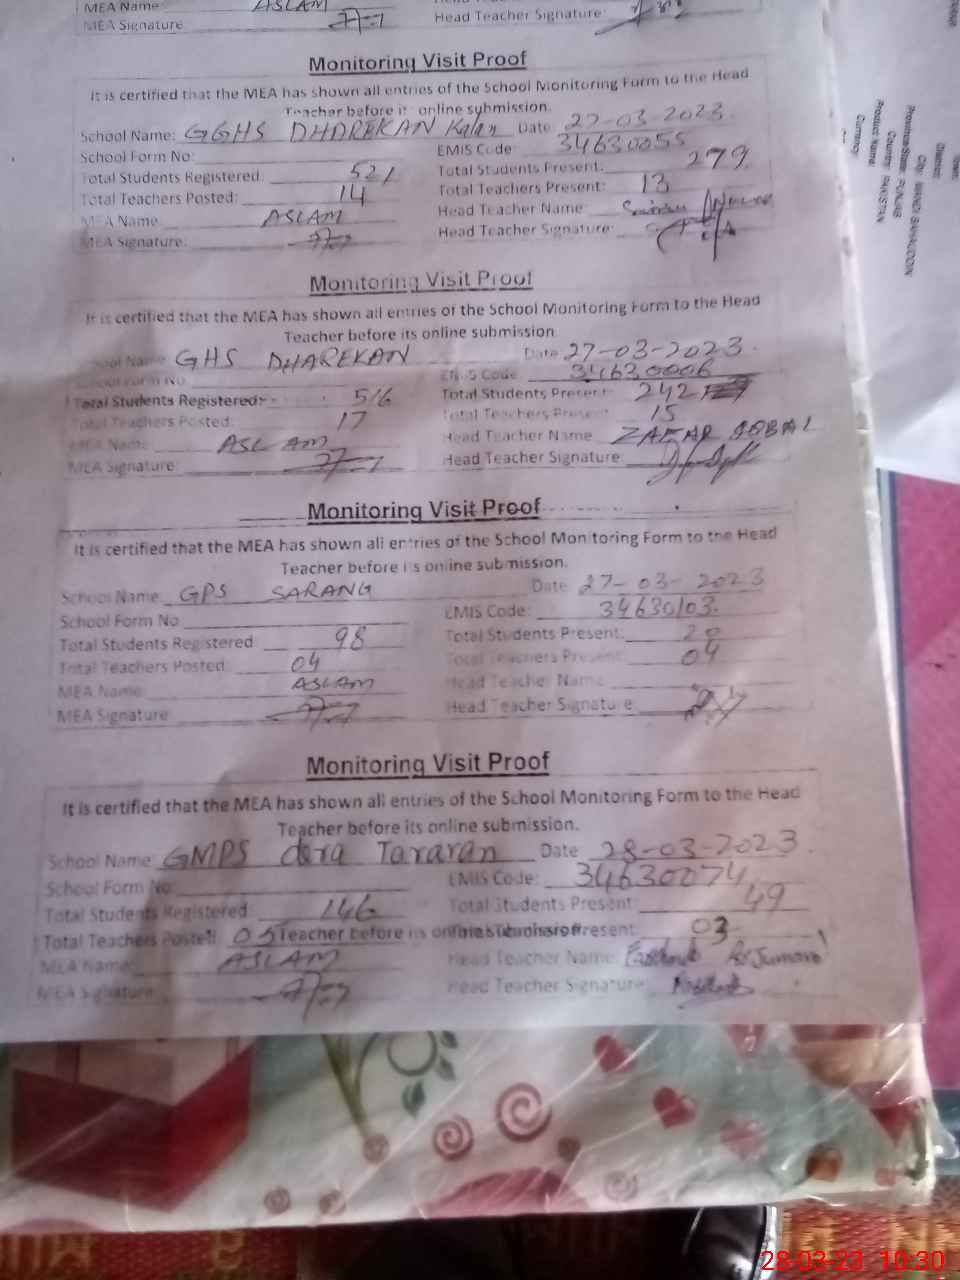 MEA Name: ASLAM
MEA Signature Head Teacher Signature:
Monitoring Visit Proof
It is certified that the MEA has shown all entries of the School Monitoring Form to the Head
Teacher before it online submission.
School Name: GGHS DHAREKAN Kalan Date 27-03-2023.
School Form No: EMIS Code: 34630055
Total Students Registered. 521 Total Students Present: 279
Total Teachers Posted: 14 Total Teachers Present: 13
MEA Name: ASLAM Head Teacher Name:
MEA Signature: Head Teacher Signature:
Monitoring Visit Proof
It is certified that the MEA has shown all entries of the School Monitoring Form to the Head
Teacher before its online submission
School Name GHS DHAREKAN Date 27-03-2023.
School Form No EMIS Code 34630006
Total Students Registered: 516 Total Students Present: 242
Total Teachers Posted: 17 Total Teachers Present 15
MEA Name ASLAM Head Teacher Name ZAFAR IQBAL
MEA Signature: Head Teacher Signature:
Monitoring Visit Proof
It is certified that the MEA has shown all entries of the School Monitoring Form to the Head
Teacher before its online submission.
School Name: GPS SARANG Date 27-03-2023
School Form No EMIS Code: 34630103.
Total Students Registered 98 Total Students Present: 20
Total Teachers Posted: 04 Total Teachers Present: 04
MEA Name: ASLAM Head Teacher Name
MEA Signature Head Teacher Signature
Monitoring Visit Proof
It is certified that the MEA has shown all entries of the School Monitoring Form to the Head
Teacher before its online submission.
School Name GMPS dera Tararan Date 28-03-2023.
School Form No: EMIS Code: 34630074
Total Students Registered 146 Total Students Present: 49
Total Teachers Posted: 05 Teacher before its online submission Present: 03
MEA Name: ASLAM Head Teacher Name:
MEA Signature: Head Teacher Signature:
District:
City: MANDI BAHAUDDIN
Province/State: PUNJAB
Country: PAKISTAN
Product Name:
Currency:
28-03-23 10:30